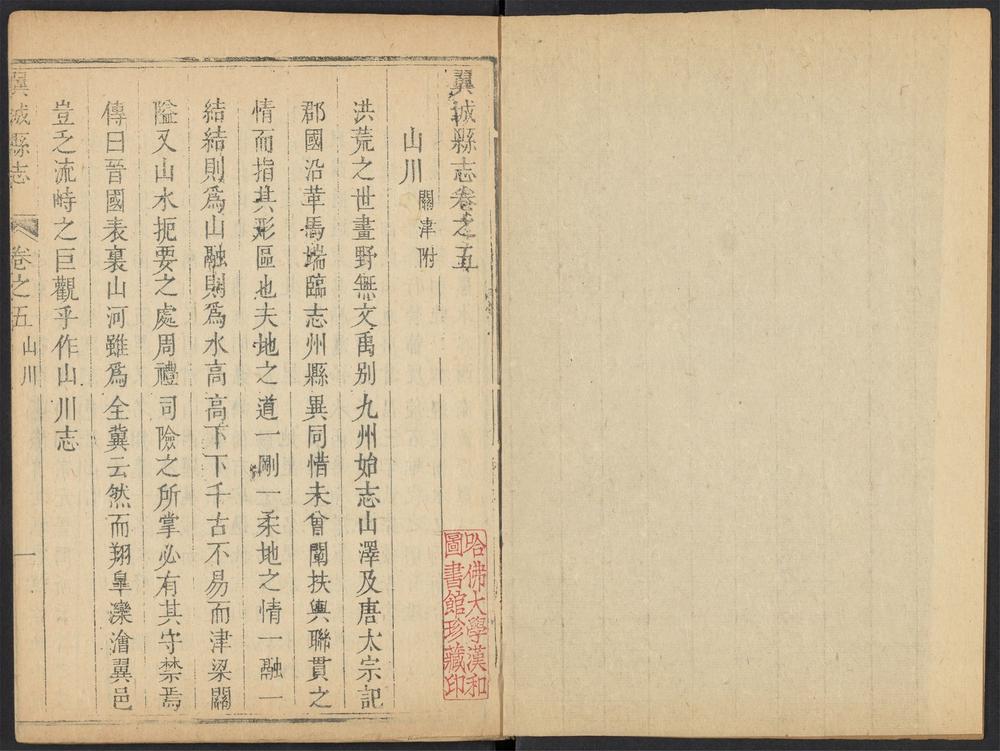 翼城縣志卷之五
山川 關津附
洪荒之世畫野無文禹别九州始志山澤及唐太宗記
郡國沿革馬端臨志州縣異同惜未曾闡扶輿聯貫之
情而指其形區也夫地之道一剛一柔地之情一融一
結結則爲山融則爲水高高下下千古不易而津梁關
隘又山水扼要之處周禮司險之所掌必有其守禁焉
傳曰晉國表裏山河雖爲全冀云然而翔臯灤澮翼邑
豈乏流峙之巨觀乎作山川志
翼城縣志 卷之五 山川 一
哈佛大學漢和
圖書館珍藏印